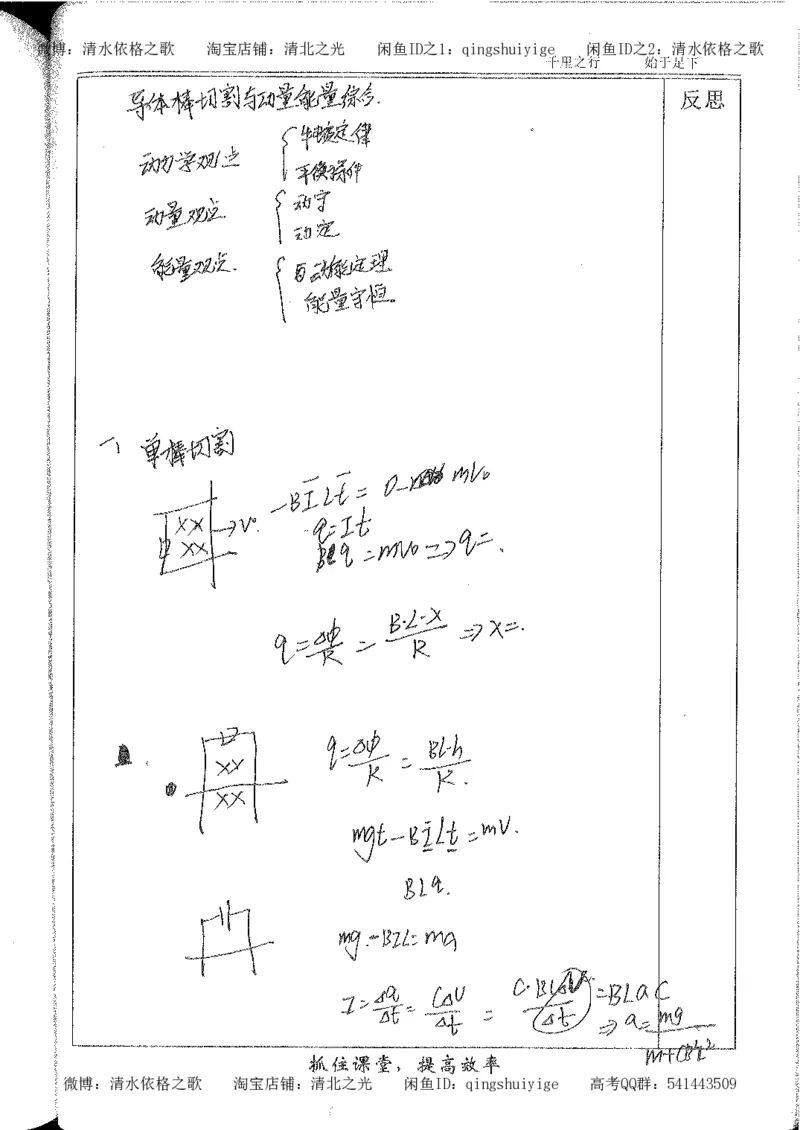 微博：清水依格之歌 淘宝店铺：清北之光 闲鱼ID之1：qingshuiyige 闲鱼ID之2：清水依格之歌
千里之行 始于足下
导体棒切割与动量能量综合.
反思
动力学观点 { 牛顿定律
平衡条件
动量观点 { 动守
动定
能量观点. { 动能定理
能量守恒。
一、单棒切割
-BI̅Lt̅ = 0 - mV₀
XX → V₀.
XX
q=It
BLq = mV₀ => q=.
q = ΔΦ/R = B·L·X/R => X=.
XX
XX
q = ΔΦ/R = BL·h/R.
mgt - BI̅Lt = mV.
BLq.
mg - BIL = ma
I = Δq/Δt = CΔU/Δt = C·BLΔV/Δt = BLaC
=> a = mg/(m+CB²L²)
抓住课堂，提高效率
微博：清水依格之歌 淘宝店铺：清北之光 闲鱼ID：qingshuiyige 高考QQ群：541443509